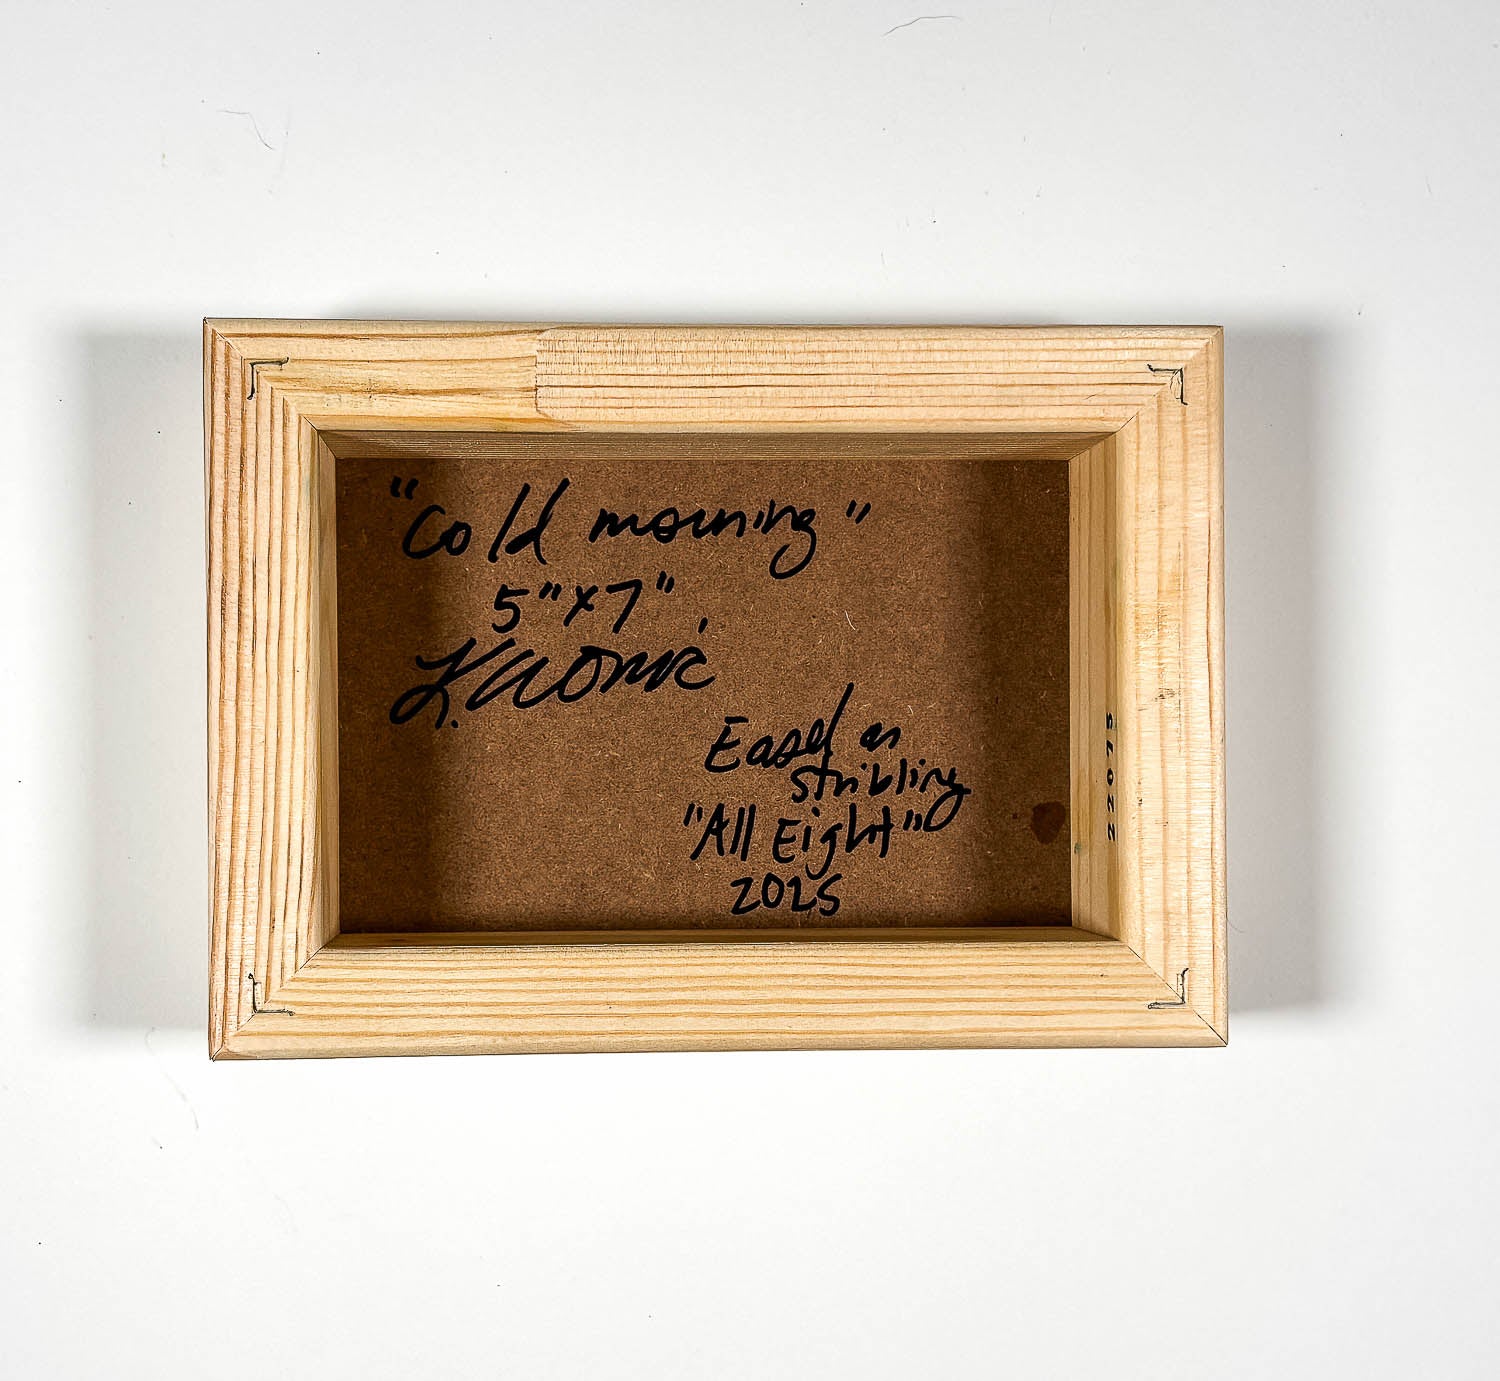 "Cold morning"
5"x7",
Easel on
stribling
"All Eight"
2025
22075